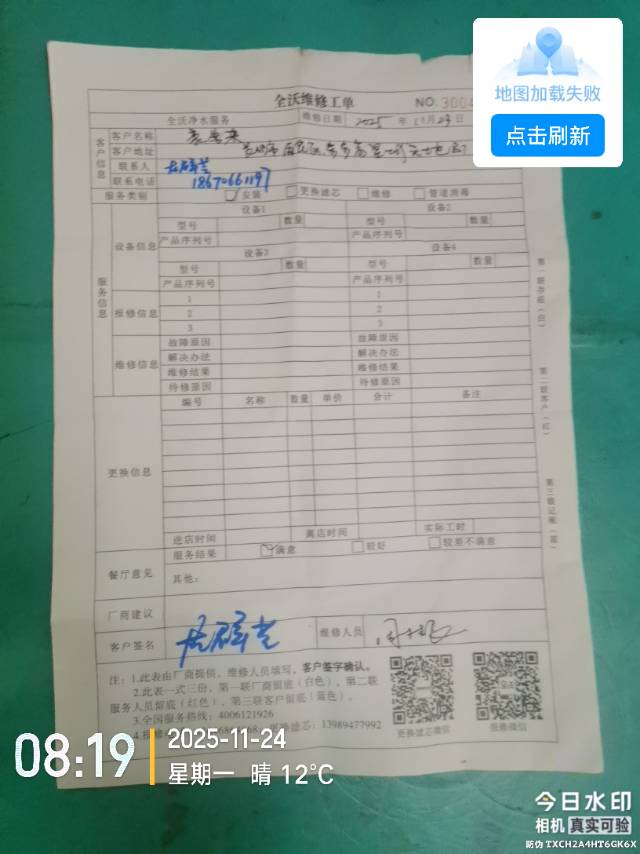 地图加载失败
点击刷新
全沃维修工单
NO. 3004
全沃净水服务 维修日期 2025 年 11月24
客户信息
客户名称
客户地址
联系人
联系电话 18670661197
服务类别 安装 更换滤芯 维修 管道消毒
服务信息
设备信息
设备1 设备2
型号 数量 型号 数量
产品序列号 产品序列号
设备3 设备4
型号 数量 型号 数量
产品序列号 产品序列号
报修信息
1 1
2 2
3 3
维修信息
故障原因 故障原因
解决办法 解决办法
维修结果 维修结果
待修原因 待修原因
更换信息
编号 名称 数量 单价 合计 备注
进店时间 离店时间 实际工时
服务结果 满意 较好 较差不满意
餐厅意见 其他:
厂商建议
客户签名 维修人员
注:1.此表由厂商提供,维修人员填写,客户签字确认。
2.此表一式三份,第一联厂商留底(白色),第二联
服务人员留底(红色),第三联客户留底(蓝色)。
3.全国服务热线:4006121926
更换滤芯:13989477992
更换滤芯微信 报修微信
第一联存根(白)
第二联客户(红)
第三联记账(蓝)
08:19
2025-11-24
星期一 晴 12°C
今日水印
相机 真实可验
防伪 TXCH2A4HT6GK6X